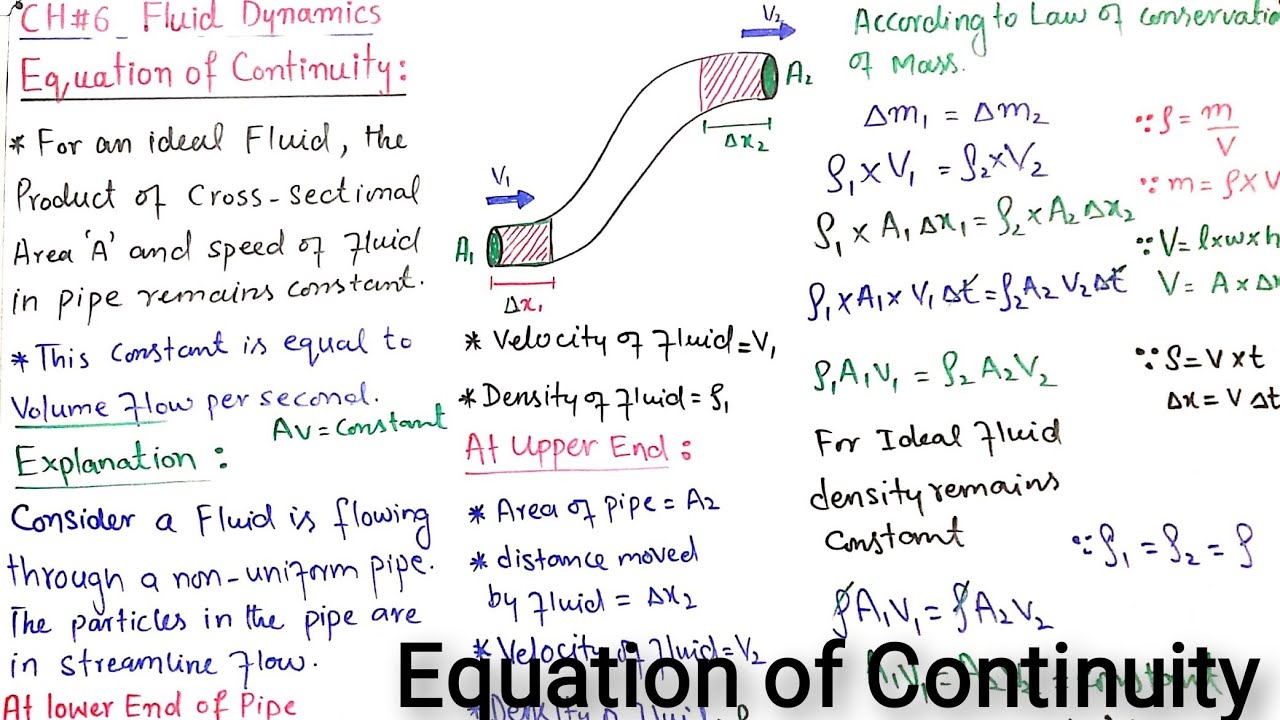 CH#6 Fluid Dynamics
Equation of Continuity:
* For an ideal Fluid, the
Product of Cross-sectional
Area 'A' and speed of fluid
in pipe remains constant.
* This constant is equal to
Volume flow per second.
Av = constant
Explanation:
Consider a Fluid is flowing
through a non-uniform pipe.
The particles in the pipe are
in streamline flow.
At lower End of Pipe
V₂
A₂
Δx₂
V₁
A₁
Δx₁
* Velocity of fluid = V₁
* Density of fluid = ρ₁
At Upper End:
* Area of pipe = A₂
* distance moved
by fluid = Δx₂
* Velocity of fluid = V₂
According to Law of conservatio
of Mass.
Δm₁ = Δm₂
∵ ρ = m/V
ρ₁ x V₁ = ρ₂ x V₂
∵ m = ρ x V
ρ₁ x A₁ Δx₁ = ρ₂ x A₂ Δx₂
∵ V = l x w x h
V = A x Δx
ρ₁ x A₁ x V₁ Δt = ρ₂ A₂ V₂ Δt
∵ S = V x t
Δx = V Δt
ρ₁A₁V₁ = ρ₂A₂V₂
For Ideal fluid
density remains
constant
∵ ρ₁ = ρ₂ = ρ
ρA₁V₁ = ρA₂V₂
Equation of Continuity